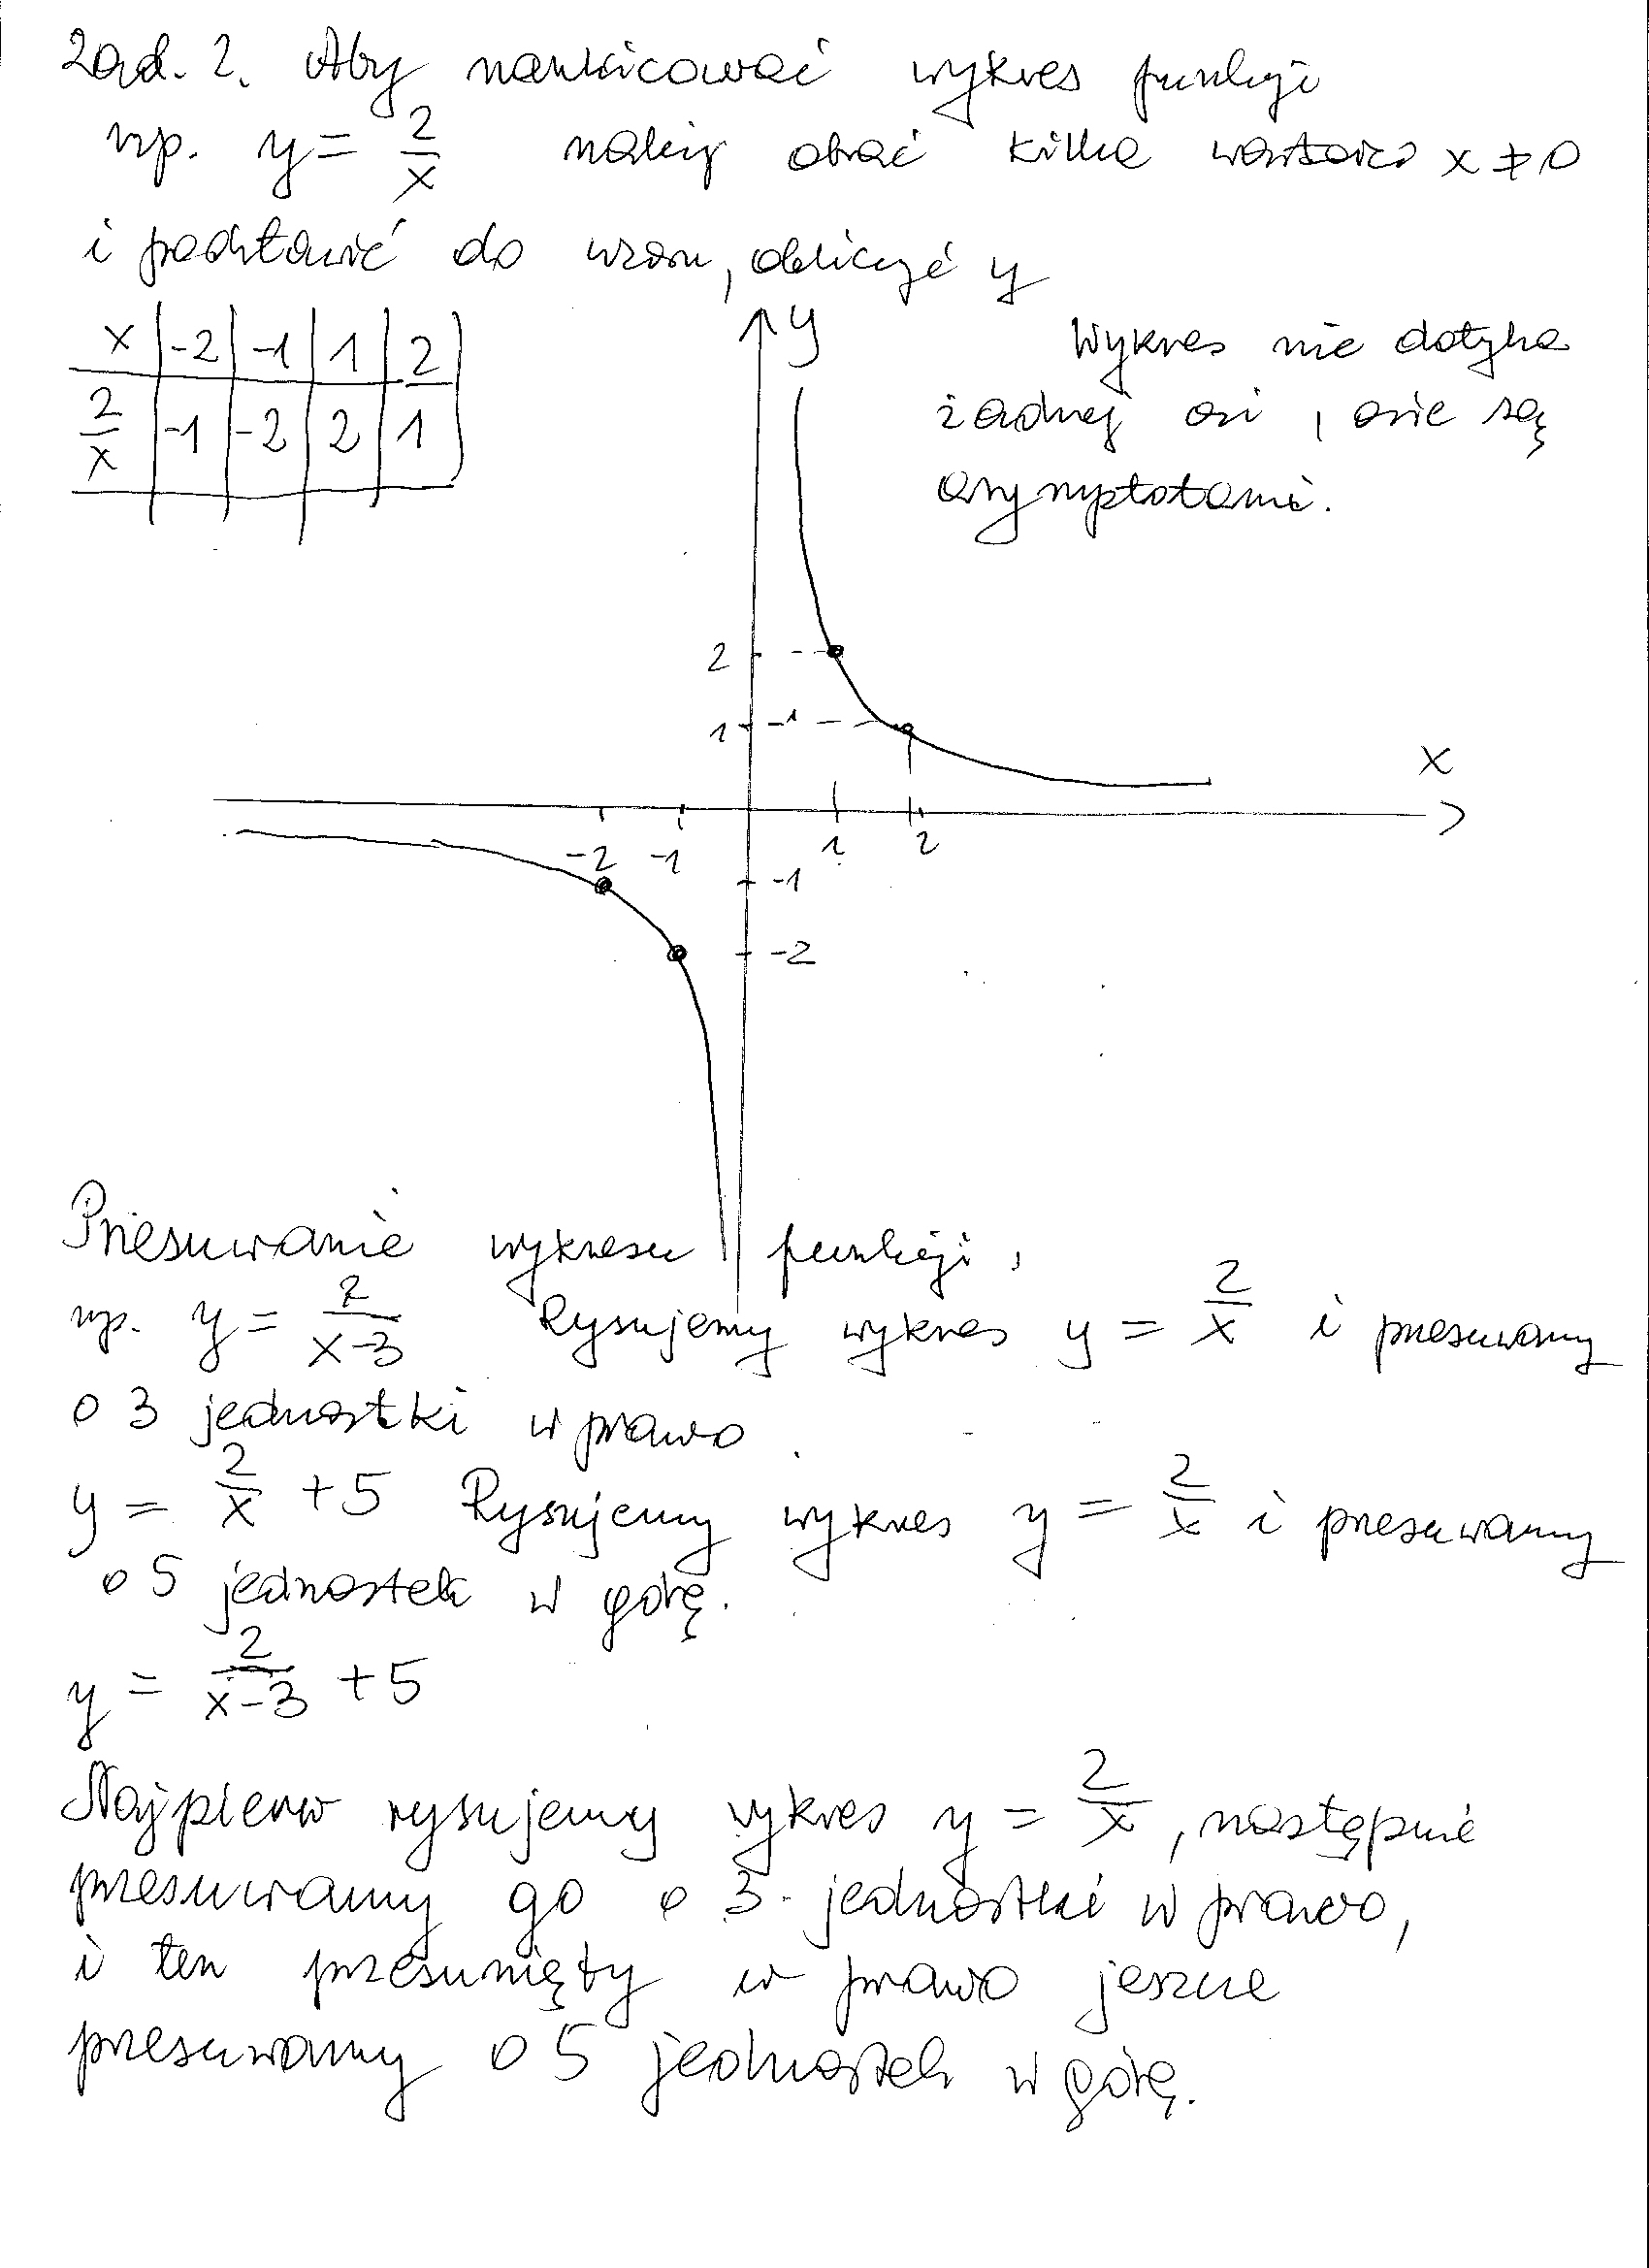 Zad. 2. Aby naszkicować wykres funkcji
np. y = 2/x należy obrać kilka wartości x ≠ 0
i podstawić do wzoru, obliczyć y
x | -2 | -1 | 1 | 2
2/x | -1 | -2 | 2 | 1
y
Wykres nie dotyka
żadnej osi, osie są
asymptotami.
2
1
x
-2 -1 1 2
-1
-2
Przesuwanie wykresu funkcji,
np. y = 2/(x-3) Rysujemy wykres y = 2/x i przesuwamy
o 3 jednostki w prawo.
y = 2/x + 5 Rysujemy wykres y = 2/x i przesuwamy
o 5 jednostek w górę.
y = 2/(x-3) + 5
Najpierw rysujemy wykres y = 2/x, następnie
przesuwamy go o 3 jednostki w prawo,
i ten przesunięty w prawo jeszcze
przesuwamy o 5 jednostek w górę.